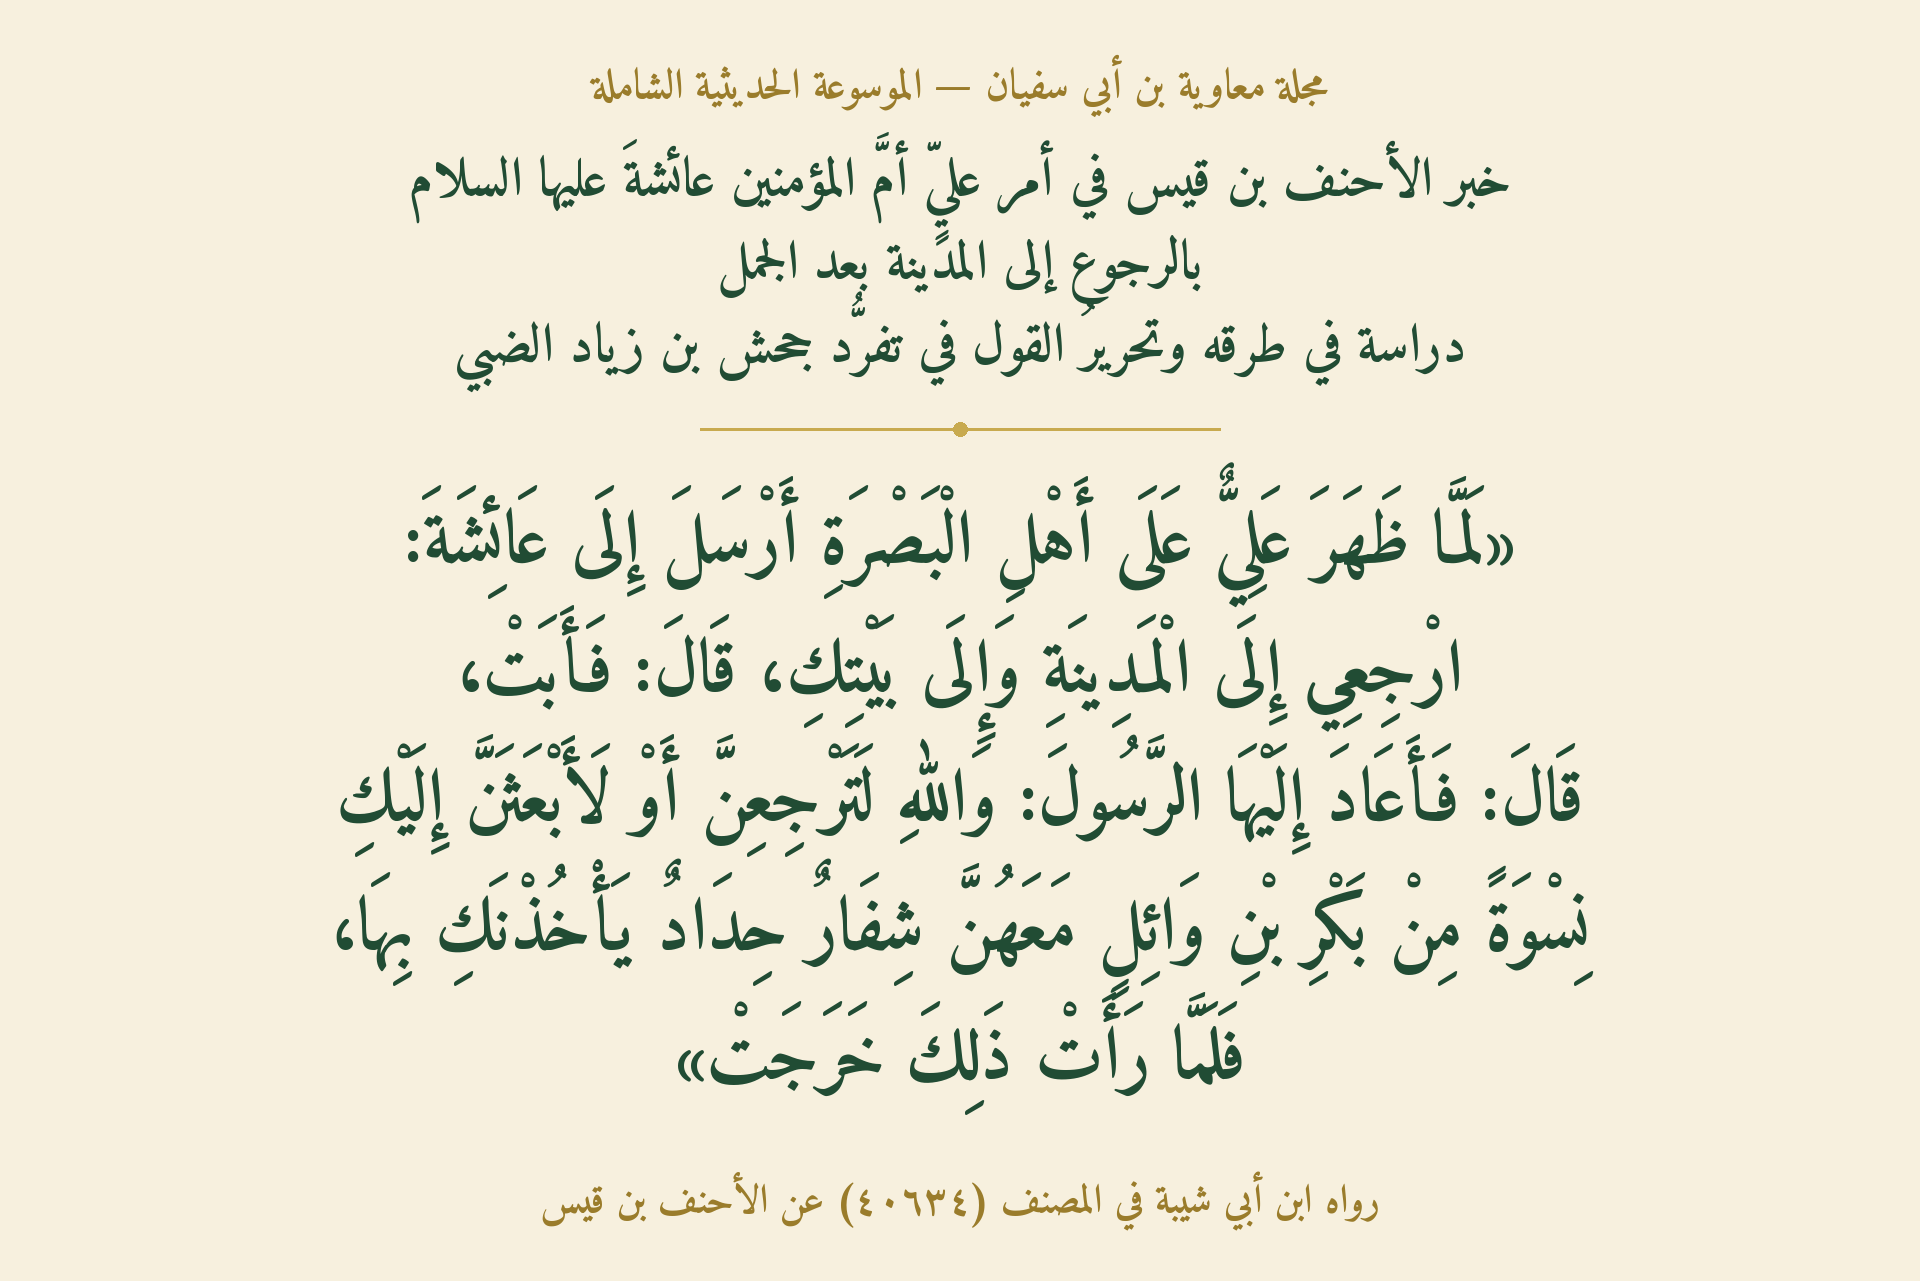 مجلة معاوية بن أبي سفيان — الموسوعة الحديثية الشاملة
خبر الأحنف بن قيس في أمر عليّ أمَّ المؤمنين عائشةَ عليها السلام
بالرجوعِ إلى المدينة بعد الجمل
دراسة في طرقه وتحريرُ القول في تفرُّد جحش بن زياد الضبي
«لَمَّا ظَهَرَ عَلِيٌّ عَلَى أَهْلِ الْبَصْرَةِ أَرْسَلَ إِلَى عَائِشَةَ:
ارْجِعِي إِلَى الْمَدِينَةِ وَإِلَى بَيْتِكِ، قَالَ: فَأَبَتْ،
قَالَ: فَأَعَادَ إِلَيْهَا الرَّسُولَ: وَاللهِ لَتَرْجِعِنَّ أَوْ لَأَبْعَثَنَّ إِلَيْكِ
نِسْوَةً مِنْ بَكْرِ بْنِ وَائِلٍ مَعَهُنَّ شِفَارٌ حِدَادٌ يَأْخُذْنَكِ بِهَا،
فَلَمَّا رَأَتْ ذَلِكَ خَرَجَتْ»
رواه ابن أبي شيبة في المصنف (٤٠٦٣٤) عن الأحنف بن قيس